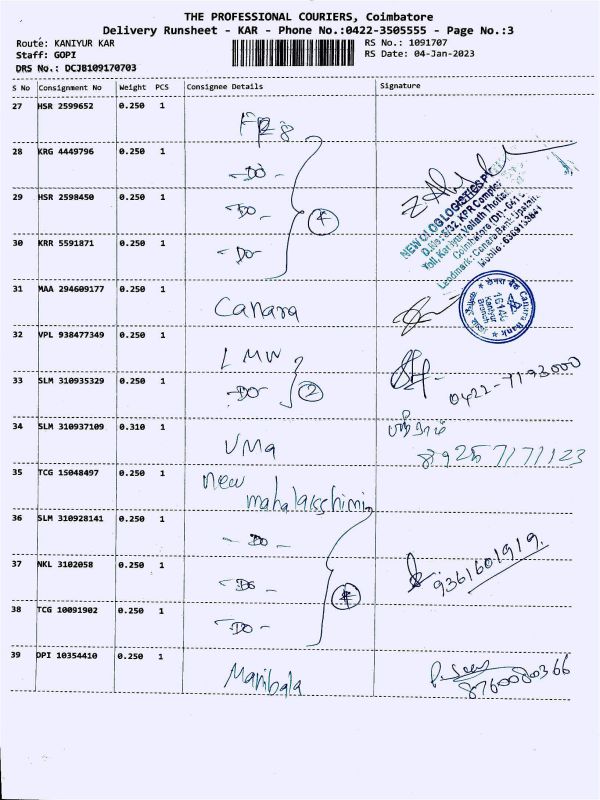 THE PROFESSIONAL COURIERS, Coimbatore
Delivery Runsheet - KAR - Phone No.:0422-3505555 - Page No.:3
Route: KANIYUR KAR
RS No.: 1091707
Staff: GOPI
RS Date: 04-Jan-2023
DRS No.: DCJB109170703
S No Consignment No Weight PCS Consignee Details Signature
27 HSR 2599652 0.250 1
28 KRG 4449796 0.250 1 -DO-
29 HSR 2598450 0.250 1 -DO- 4
30 KRR 5591871 0.250 1 -DO-
NEW
LOGISTICS
KPR Complex
Coimbatore (Dt)
Landmark: Canara Bank Upstairs
Mobile: 6369133841
31 MAA 294609177 0.250 1 Canara
Canara Bank
16144
Kaniyur
Branch
32 VPL 938477349 0.250 1 LMW
33 SLM 310935329 0.250 1 -DO- 2 0422-7193000
34 SLM 310937109 0.310 1 UMa 8925717123
35 TCG 15048497 0.250 1 New
mahalakschimi
36 SLM 310928141 0.250 1 - Do -
37 NKL 3102058 0.250 1 -Do- 4 9361601919.
38 TCG 10091902 0.250 1 -DO-
39 DPI 10354410 0.250 1 Maribala 8760080366